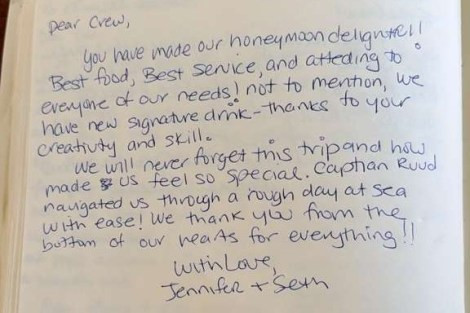 Dear Crew,
You have made our honeymoon delightful!
Best food, Best Service, and atteding to
everyone of our needs! not to mention, we
have new signature drink - thanks to your
creativity and skill.
We will never forget this trip and how
made us feel so special. Capthan Ruud
navigated us through a rough day at sea
with ease! We thank you from the
bottom of our hearts for everything!!
With Love,
Jennifer + Seth